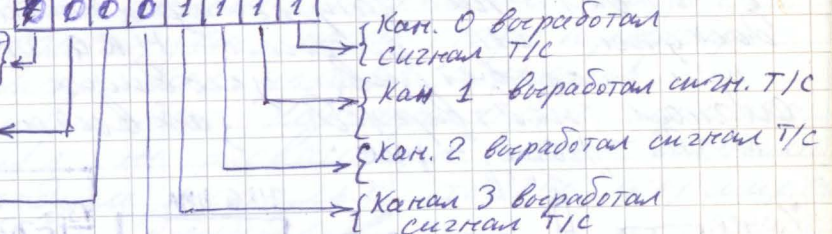 0 0 0 0 1 1 1 1
Кан. 0 выработал
сигнал Т/С
Кан 1 выработал сигн. Т/С
Кан. 2 выработал сигнал Т/С
Канал 3 выработал
сигнал Т/С